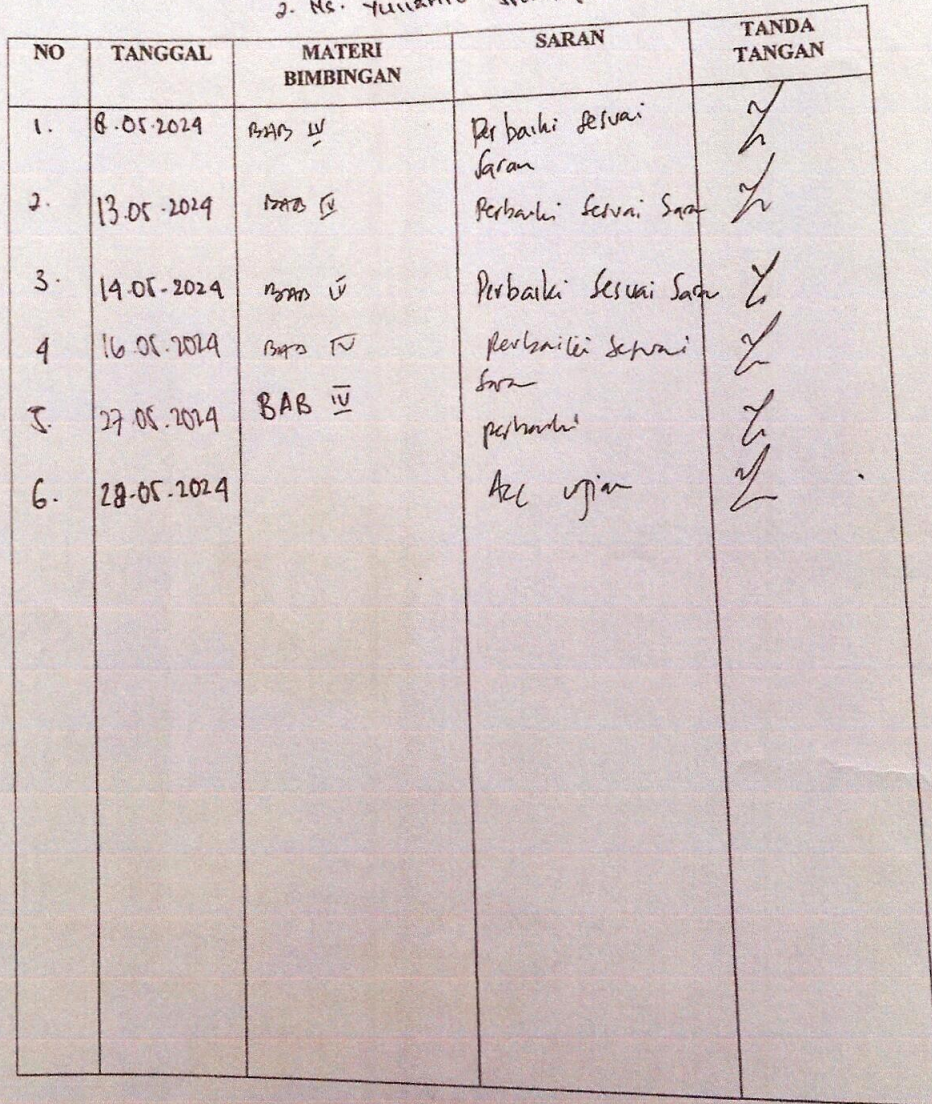 2. Ns.
NO TANGGAL MATERI BIMBINGAN SARAN TANDA TANGAN
1. 8.05.2024 BAB IV Perbaiki sesuai
saran
2. 13.05.2024 BAB IV Perbaiki sesuai saran
3. 14.05-2024 BAB IV Perbaiki sesuai saran
4 16.05.2024 BAB IV perbaiki sesuai
saran
5. 27.05.2024 BAB IV perbaiki
6. 28-05-2024 Acc ujian